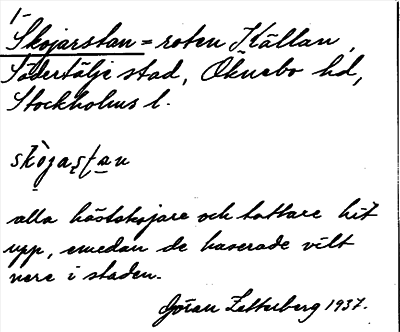 1-
Skojarstan = roten Källan,
Södertälje stad, Öknebo hd,
Stockholms l.
skòjaʂtan
alla hästskojare och tattare hit
upp, emedan de huserade vilt
nere i staden.
Göran Zetterberg 1937.